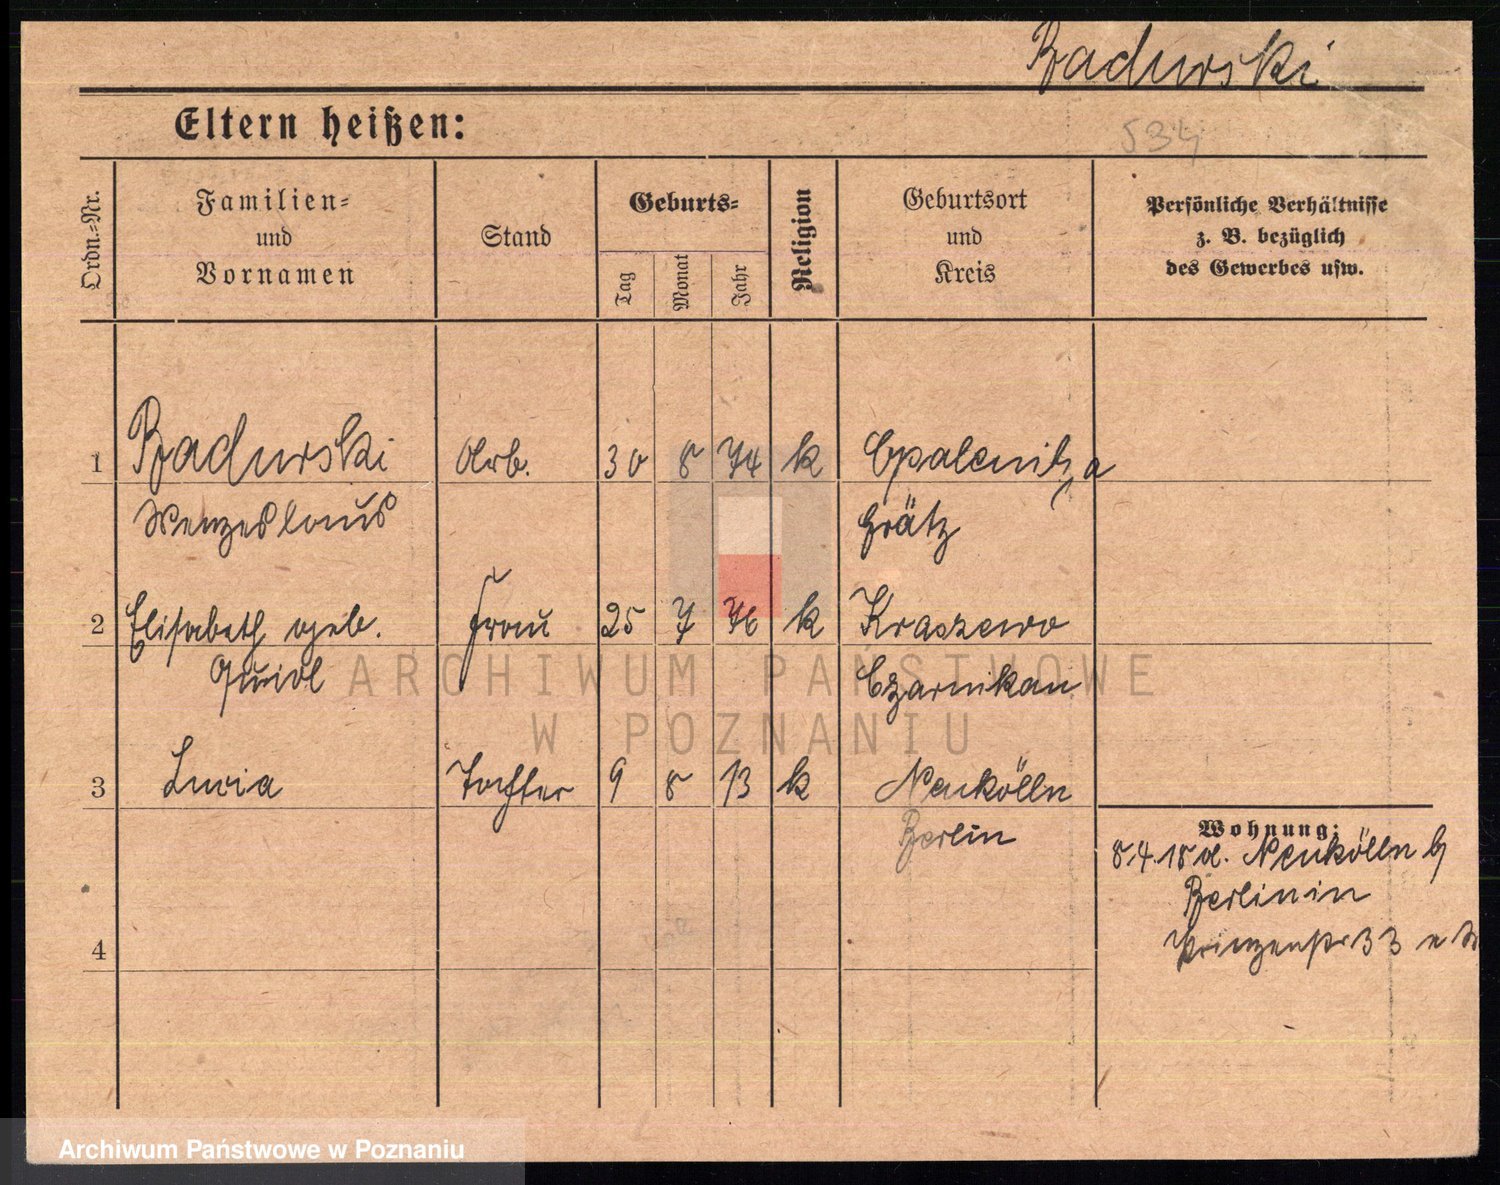 Badurski
Eltern heißen:
534
Ordn.-Nr.
Familien-
und
Vornamen
Stand
Geburts-
Tag
Monat
Jahr
Religion
Geburtsort
und
Kreis
Persönliche Verhältnisse
z. B. bezüglich
des Gewerbes usw.
1 Badurski Arb. 30 8 74 k Opalenitza
Wenzeslaus Grätz
2 Elisabeth geb. Frau 25 7 76 k Kraszewo
Czarnikau
ARCHIWUM PAŃSTWOWE
W POZNANIU
3 Lucia Tochter 9 8 13 k Neukölln
Berlin
Wohnung:
8.4.18 a. Neukölln b/
Berlin in
Prinzenstr 33
4
Archiwum Państwowe w Poznaniu